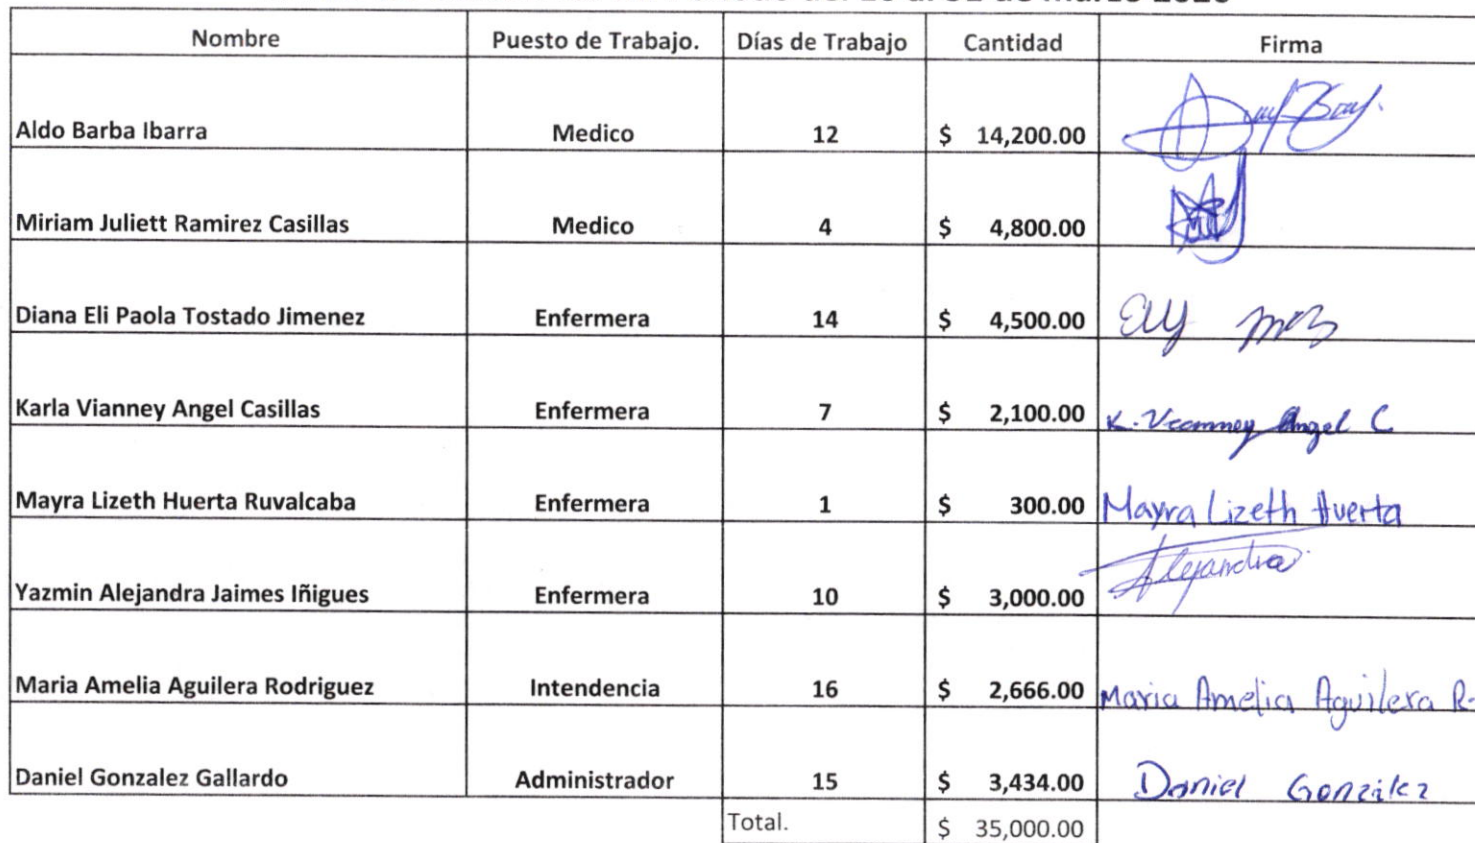 Nombre Puesto de Trabajo. Días de Trabajo Cantidad Firma
Aldo Barba Ibarra Medico 12 $ 14,200.00
Miriam Juliett Ramirez Casillas Medico 4 $ 4,800.00
Diana Eli Paola Tostado Jimenez Enfermera 14 $ 4,500.00
Karla Vianney Angel Casillas Enfermera 7 $ 2,100.00 K. Vianney Angel C
Mayra Lizeth Huerta Ruvalcaba Enfermera 1 $ 300.00 Mayra Lizeth Huerta
Yazmin Alejandra Jaimes Iñigues Enfermera 10 $ 3,000.00 Alejandra
Maria Amelia Aguilera Rodriguez Intendencia 16 $ 2,666.00 Maria Amelia Aguilera R.
Daniel Gonzalez Gallardo Administrador 15 $ 3,434.00 Daniel González
Total. $ 35,000.00